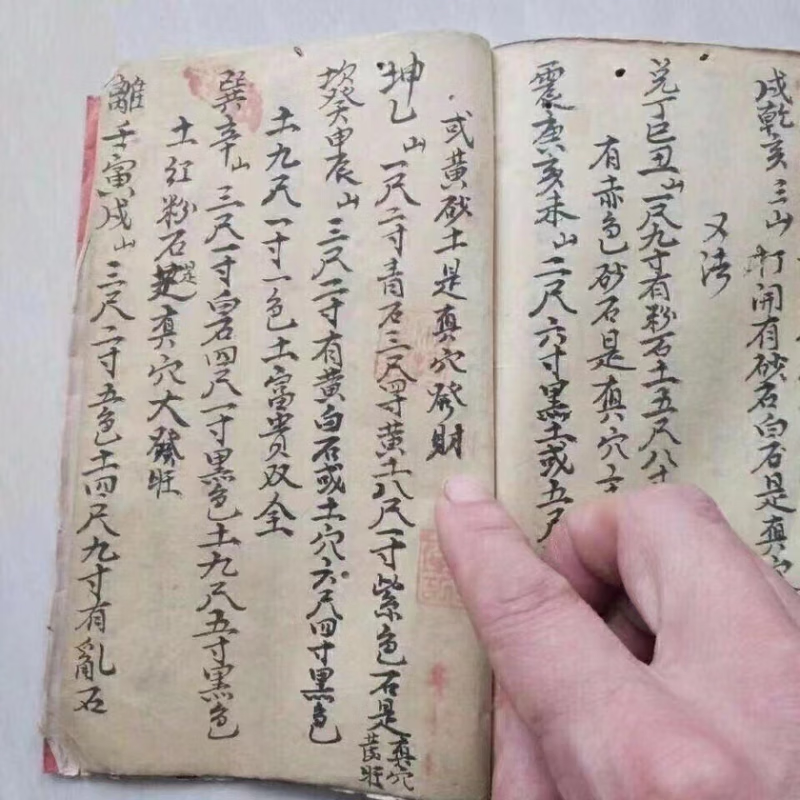 戌乾亥三山打開有砂石白石是真穴
又法
兑丁巳丑山一尺九寸有粉石土五尺八寸
有赤色砂石是真穴
震庚亥未山二尺六寸黑土或五尺
或黄砂土是真穴發財
坤乙山一尺二寸青石三尺四寸黄土八尺一寸紫色石是真穴
坎癸申辰山三尺二寸有黄白石或土穴六尺四寸黑色
土九尺一寸一色土富貴双全
巽辛山三尺一寸白石四尺一寸黑色土九尺五寸黑色
土红粉石是真穴大發旺
離壬寅戌山三尺二寸五色土四尺九寸有亂石